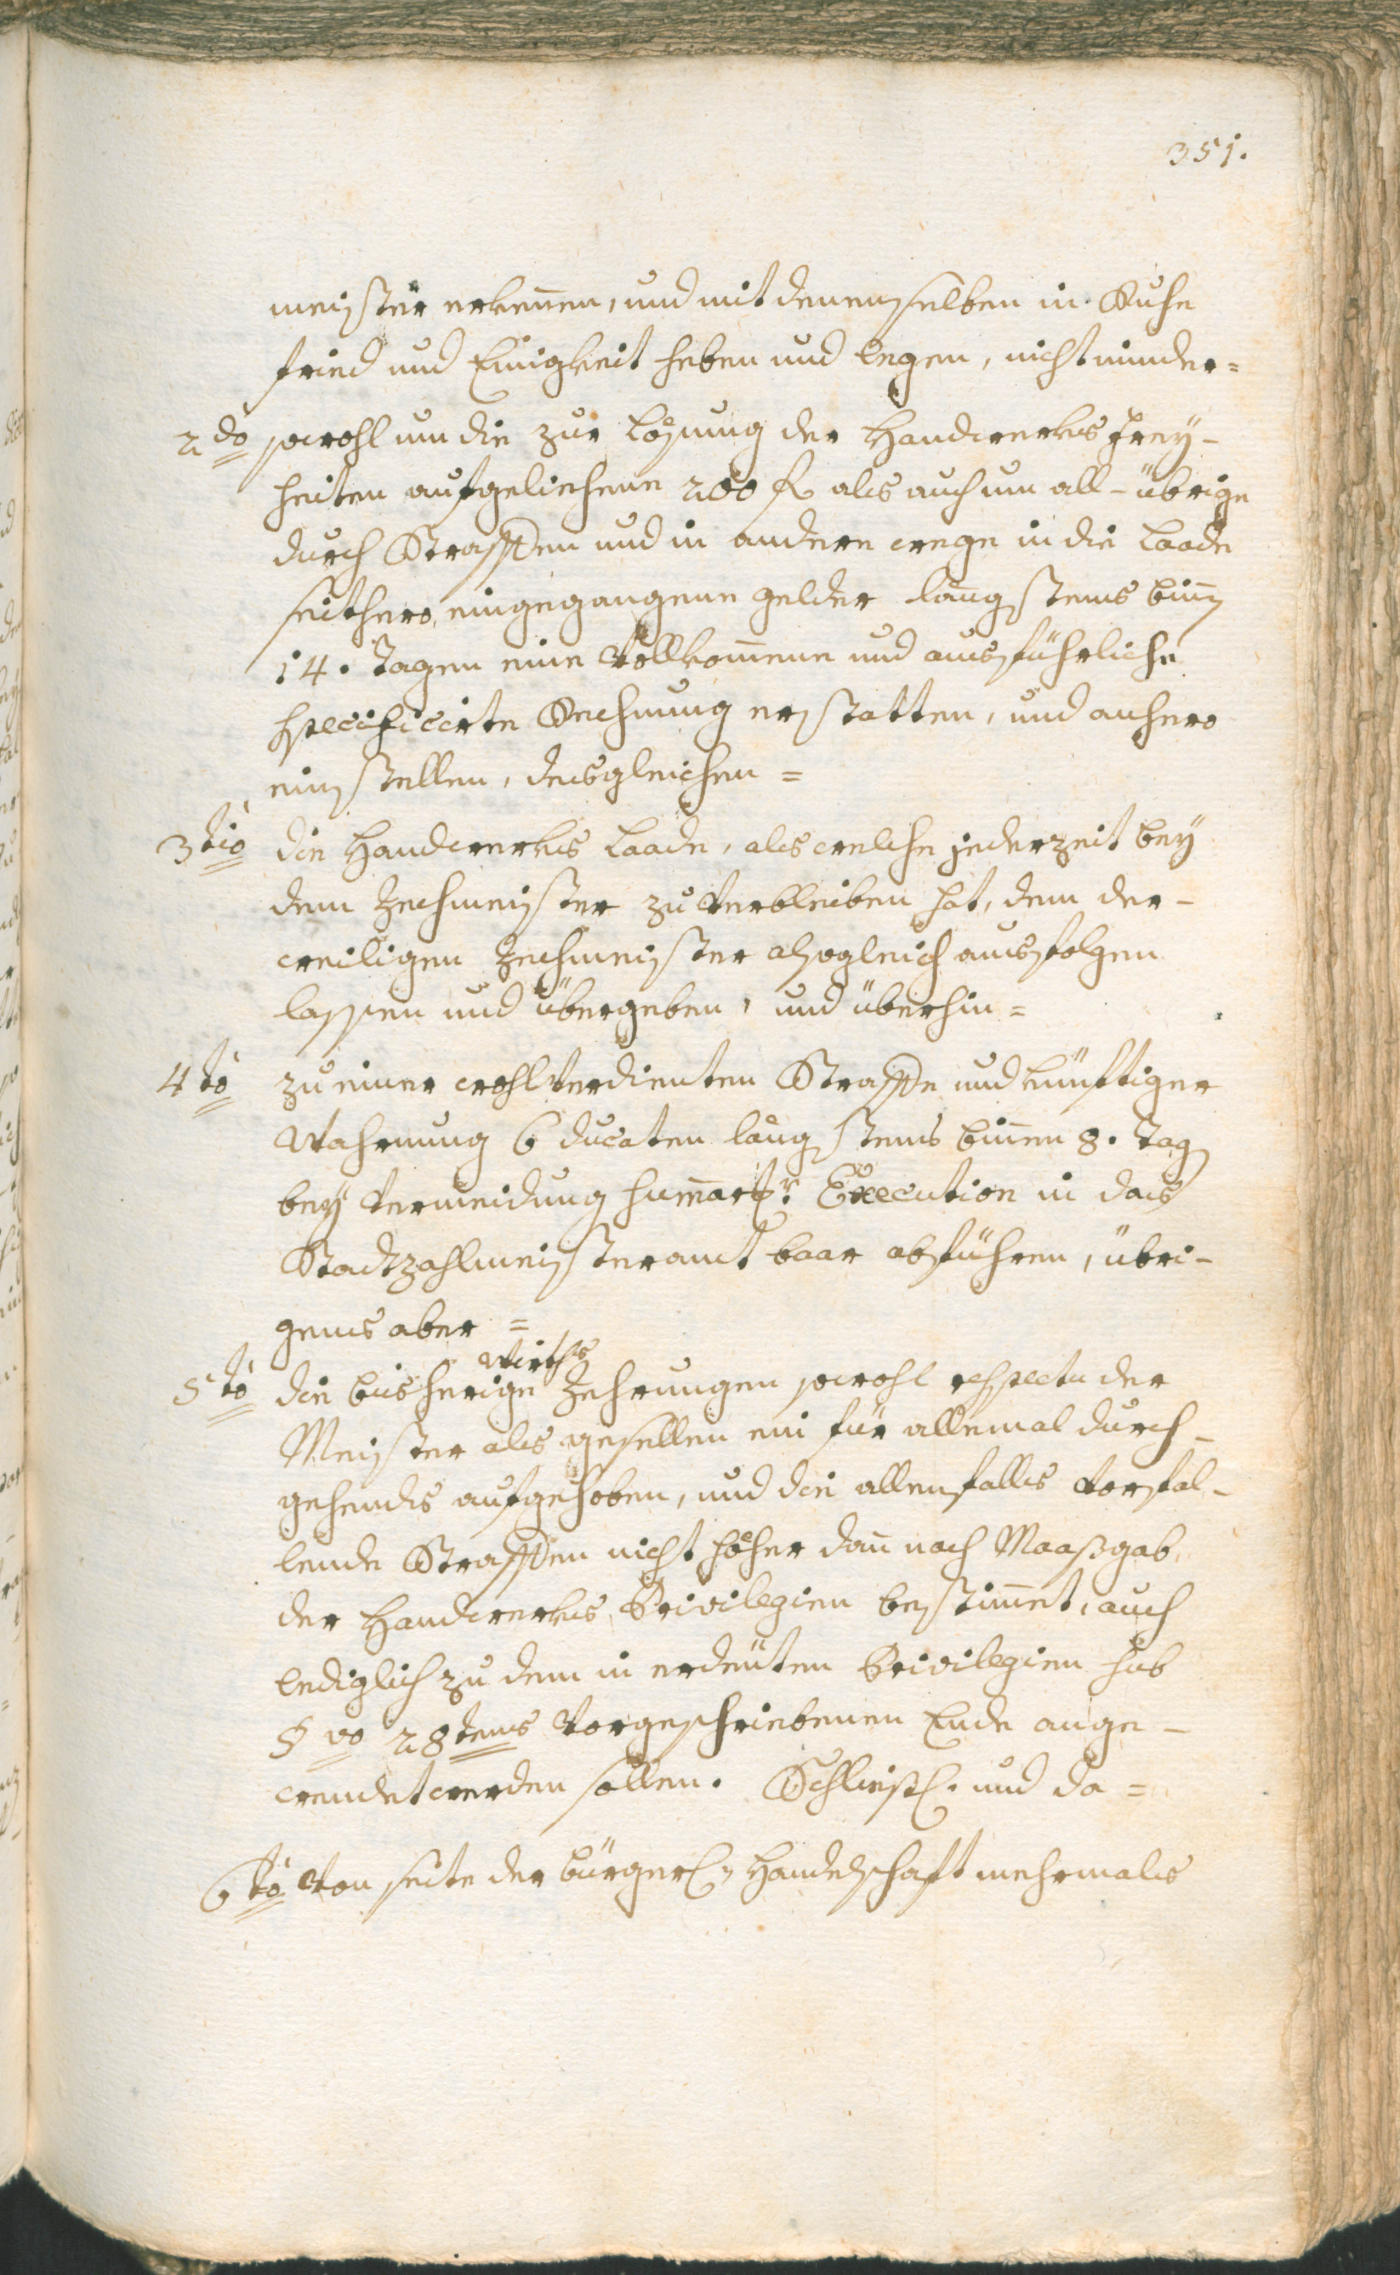 351.
meister erkennen, und mit denenselben in Ruhe
fried und Einigkeit heben und legen, nicht minder=
2do sowohl um die zur Lösung der Handwerks Frey-
heiten aufgeliehene 200 fl als auch um all-übrige
durch Straffen und in andere wege in die Laade
seithero eingegangene gelder längstens binn
14. Tagen eine vollkommene und ausführliche
specificirte Rechnung erstatten, und anhero
einstellen, desgleichen =
3tio die Handwerks Laade, als welche jederzeit bey
dem Zechmeister zu verbleiben hat, dem der-
weiligen Zechmeister alsogleich ausfolgen
lassen und übergeben, und überhin =
4to zu einer wohl verdienten Straffe und künftiger
Wahrnung 6 ducaten längstens binnen 8. Tag
bey Vermeidung sumarir Execution in das
Stadtzahlmeisteramt baar abführen, übri-
gens aber =
Wirths
5to die bisherige Zehrungen sowohl respectu der
Meister als gesellen ein für allemal durch-
gehends aufgehoben, und die allenfalls vorfal-
lende Straffen nicht höher dan nach Maaßgab
der Handwerks Privilegien bestimmet, auch
lediglich zu dem in erdeuten Privilegien sub
§vo 28tens vorgeschriebenen Ende ange-
wendet werden sollen. Schließl. und da =
6to Von seite der bürgerl. Handelschaft mehrmals